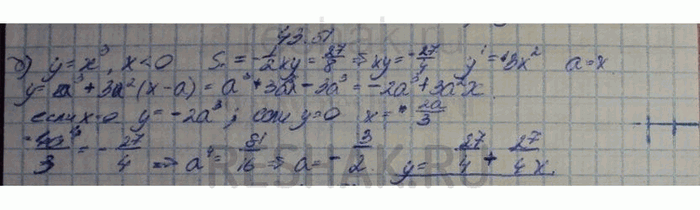 43.51
б) y = x³, x < 0 S = -1/2 xy = 27/8 ⇒ xy = -27/4 y' = 3x² a = x
y = a³ + 3a²(x - a) = a³ + 3a²x - 3a³ = -2a³ + 3a²x
если x=0 y = -2a³; если y=0 x = 2a/3
-4a⁴/3 = -27/4 ⇒ a⁴ = 81/16 ⇒ a = -3/2 y = 27/4 + 27/4 x.
reshak.ru
RESHAK.RU